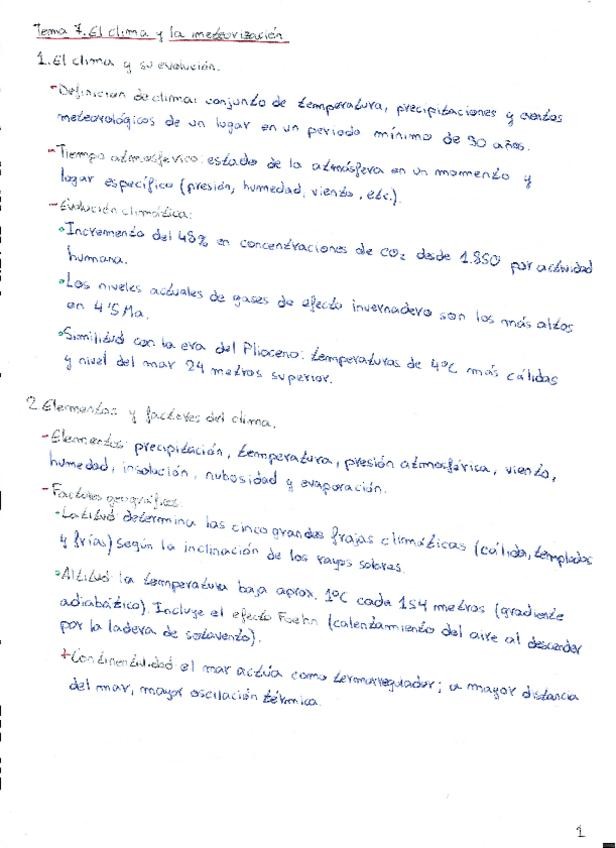 Tema 7. El clima y la meteorización
1. El clima y su evolución.
- Definición de clima: conjunto de temperatura, precipitaciones y vientos
meteorológicos de un lugar en un periodo mínimo de 30 años.
- Tiempo atmosférico: estado de la atmósfera en un momento y
lugar específico (presión, humedad, viento, etc.).
- Evolución climática:
• Incremento del 48% en concentraciones de CO₂ desde 1.850 por actividad
humana.
• Los niveles actuales de gases de efecto invernadero son los más altos
en 4'5 Ma.
• Similitud con la era del Plioceno: temperaturas de 4ºC más cálidas
y nivel del mar 24 metros superior.
2. Elementos y factores del clima.
- Elementos: precipitación, temperatura, presión atmosférica, viento,
humedad, insolución, nubosidad y evaporación.
- Factores geográficos.
- Latitud determina las cinco grandes frajas climáticas (cálida, templadas
y frías) según la inclinación de los rayos solares.
• Altitud la temperatura baja aprox. 1ºC cada 154 metros (gradiente
adiabático). Incluye el efecto Foehn (calentamiento del aire al descender
por la ladera de sotavento).
+ Continentalidad el mar actúa como termorregulador; a mayor distancia
del mar, mayor oscilación térmica.
1